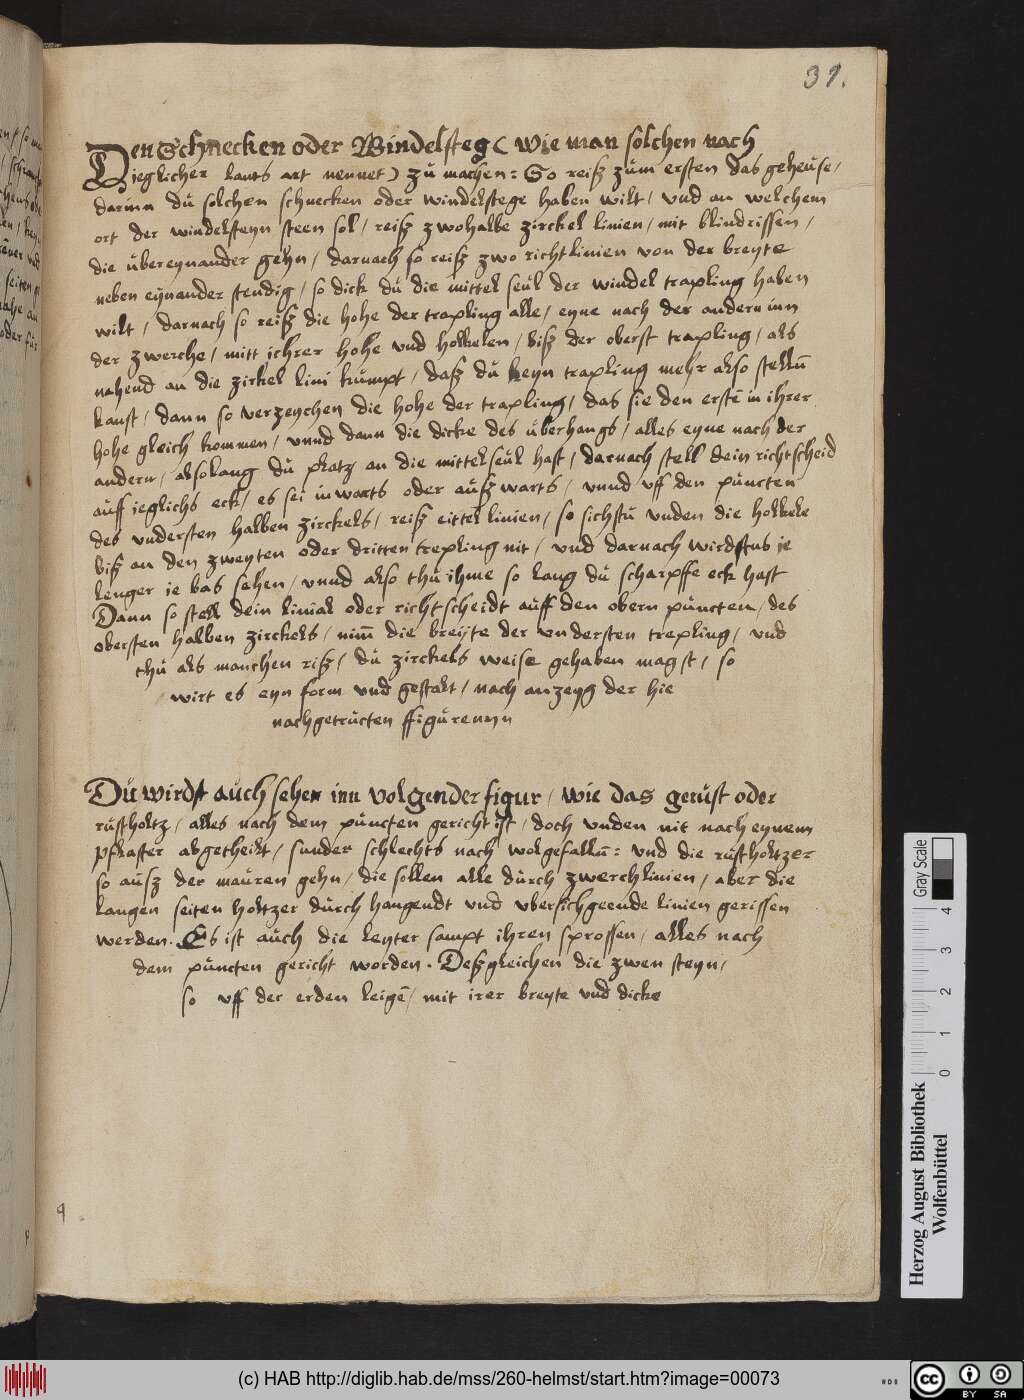 31.
Den Schnecken oder Windelsteg ( wie man solchen nach
jeglicher lants art nennet ) zů machen: So reiß zům ersten das geheüse /
darinn dů solchen schnecken oder windelstege haben wilt / und an welchem
ort der windelsteyn steen sol / reiß zwo halbe zirckel linien / mit blindrissen /
die übereynander gehn / darnach so reiß zwo richt linien von der breyte
neben eynander stendig / so dick dů die mittel seül der windel trapling haben
wilt / darnach so reiß die hohe der trapling alle / eyne nach der andern inn
der zwerche / mitt ichrer hohe und holkelen / biß der oberst trapling / als
nahend an die zirkel lini kůmpt / daß dů keyn trapling mehr also stellñ
kanst / dann so verzeychen die hohe der trapling / das sie den erstẽ in ihrer
hohe gleich kommen / unnd dann die dicke des überhangs / alles eyne nach der
andern / alsolang dů platz an die mittelseül hast / darnach stell dein richtscheid
auff jeglichs eck / es sei inwarts oder außwarts / unnd uff den půncten
des understen halben zirckels / reiß eittel linien / so sichstu unden die holkele
biß an den zweyten oder dritten trepling nit / und darnach wirdstus je
lenger je bas sehen / unnd also thů ihme so lang dů scharpffe eck hast
Dann so stell dein linial oder richtscheidt auff den obern půncten / des
obersten halben zirckels / nim̃ die breijte der understen trepling / und
thů als manchen riß / dů zirckels weise gehaben magst / so
wirt es eyn form und gestalt / nach anzeyg der hie
nachgetrůcten ffigůrennn
Dů wirdst aůch sehen inn volgender figur / wie das gerüst oder
rüstholtz / alles nach dem půncten gericht ist / doch unden nit nach eynem
pflaster abgetheilt / sunder schlechts nach wolgefallñ: und die rüstholtzer
so ausz der mauren gehn / die sollen alle dürch zwerchlinien / aber die
langen seiten holtzer dürch hangendt und ubersichgeende linien gerissen
werden. Es ist aůch die leyter sampt ihren sprossen / alles nach
dem půncten gericht worden. Deßgleichen die zwen steyn /
so uff der erden leigẽ / mit irer breyte und dicke
Gray Scale
0 1 2 3 4
Herzog August Bibliothek
Wolfenbüttel
(c) HAB http://diglib.hab.de/mss/260-helmst/start.htm?image=00073
HAB
cc BY SA